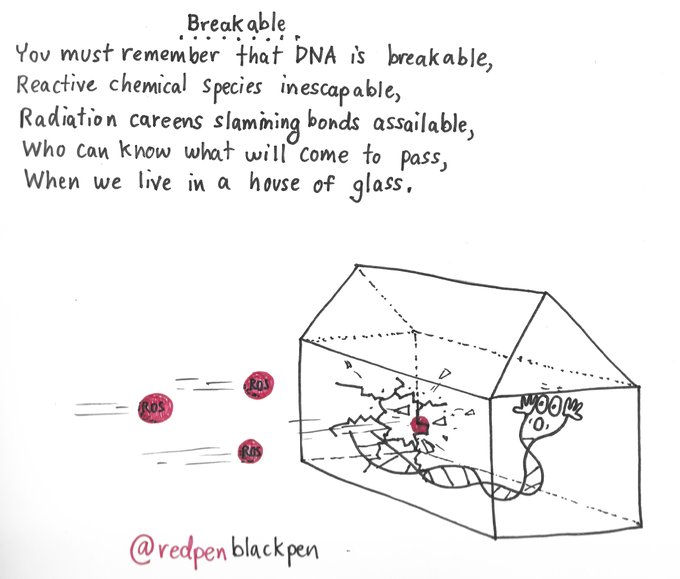 Breakable
You must remember that DNA is breakable,
Reactive chemical species inescapable,
Radiation careens slamming bonds assailable,
Who can know what will come to pass,
When we live in a house of glass.
ROS
ROS
ROS
@redpenblackpen